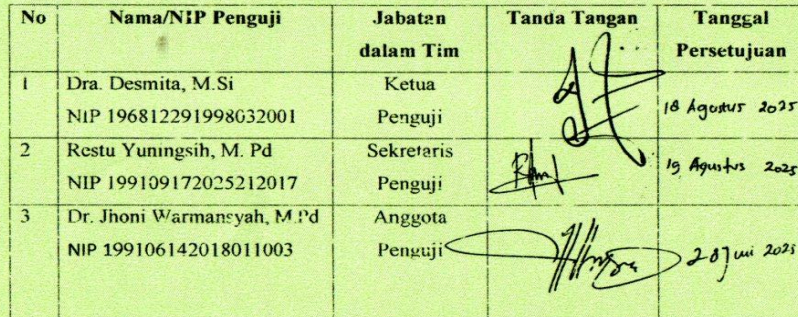 No Nama/NIP Penguji Jabatan dalam Tim Tanda Tangan Tanggal Persetujuan
1 Dra. Desmita, M.Si Ketua
NIP 196812291998032001 Penguji 18 Agustus 2025
2 Restu Yuningsih, M. Pd Sekretaris
NIP 199109172025212017 Penguji 19 Agustus 2025
3 Dr. Jhoni Warmansyah, M.Pd Anggota
NIP 199106142018011003 Penguji 28 Juni 2025